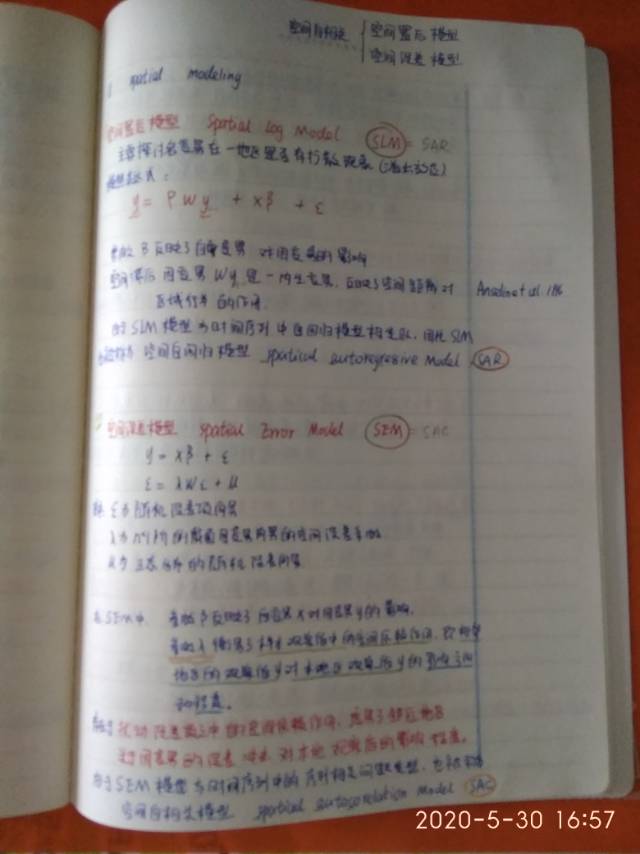 空间自相关 { 空间滞后模型
空间误差模型
1 spatial modeling
空间滞后模型 Spatial Log Model SLM = SAR
主要探讨各变量在一地区是否有扩散现象(溢出效应)
模型表达式:
y = ρWy + xβ + ε
参数β反映了自变量 对因变量的影响
空间滞后因变量Wy是一内生变量,反映了空间距离对
区域行为的作用.
Anselin et al. 1
由于SLM模型与时间序列中自回归模型相类似,因此SLM
也被称为 空间自回归模型 spatical autoregresive Model SAR
空间误差模型 spatial Error Model SEM = SAC
y = xβ + ε
ε = λWε + μ
ε为随机误差项向量
λ为n×1的截面因变量向量的空间误差系数
μ为正态分布的随机误差向量
在SEM中 参数β反映了自变量x对因变量y的影响.
参数λ衡量了样本观察值中的空间依赖作用,即相邻
地区的观察值y对本地区观察值y的影响方向
和程度.
扰动误差项之中的空间依赖作用,度量了邻近地区
因变量的误差冲击对本地观察值的影响程度.
由于SEM模型与时间序列中的序列相关问题类似,也被称为
空间自相关模型 spatial autocorelation Model SAC
2020-5-30 16:57